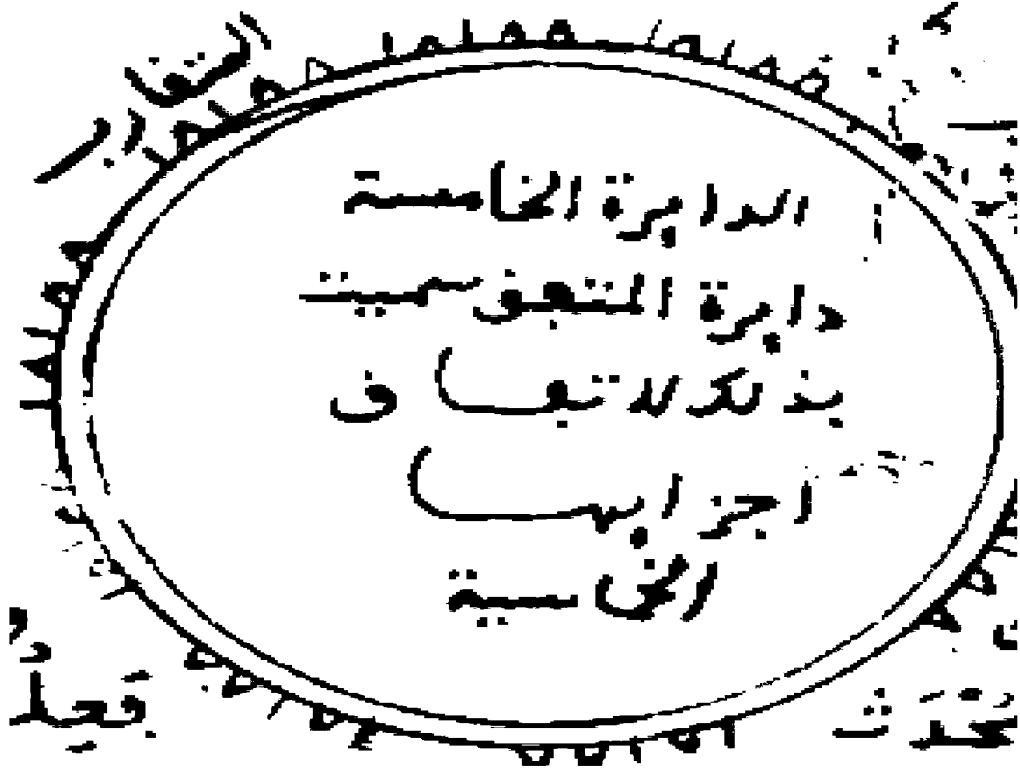 التقارب
الدايرة الخامسة
دايرة المتفق سميت
بذلك لا تفاق
اجزايها
الخماسية